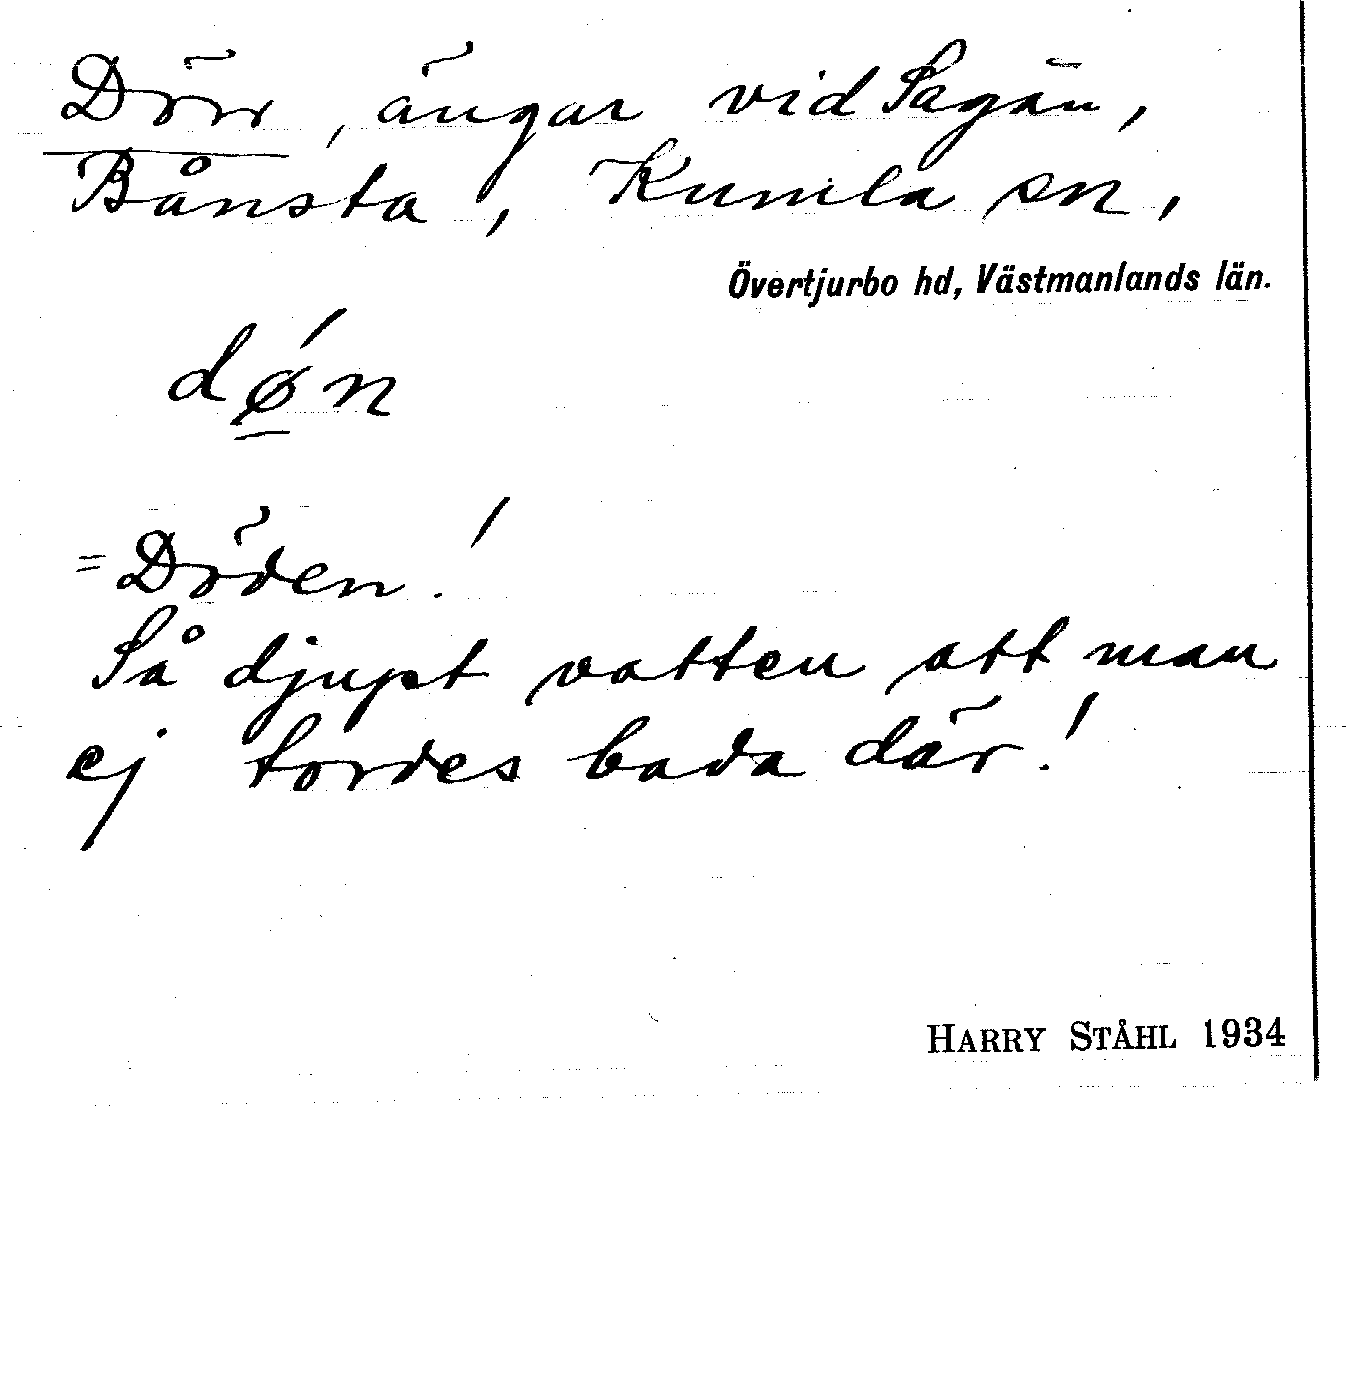 Dörr, ängar vid Sagån,
Bånsta, Kumla sn,
Övertjurbo hd, Västmanlands län.
dǿn
= Döden!
Så djupt vatten att man
ej tordes bada där!
HARRY STÅHL 1934